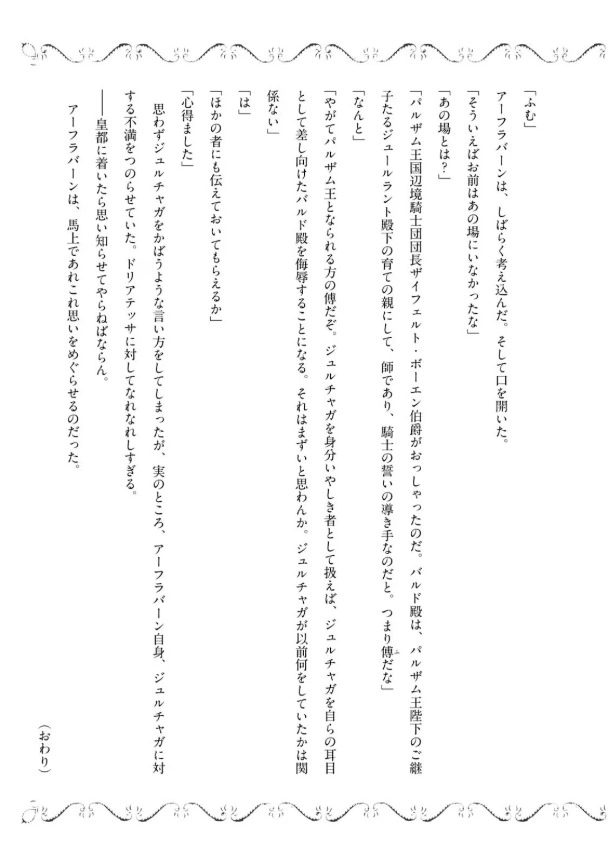 「ふむ」
　アーフラバーンは、しばらく考え込んだ。そして口を開いた。
「そういえばお前はあの場にいなかったな」
「あの場とは？」
「パルザム王国辺境騎士団団長ザイフェルト・ボーエン伯爵がおっしゃったのだ。バルド殿は、パルザム王陛下のご継
子たるジュールラント殿下の育ての親にして、師であり、騎士の誓いの導き手なのだと。つまり傅だな」
「なんと」
「やがてパルザム王となられる方の傅だぞ。ジュルチャガを身分いやしき者として扱えば、ジュルチャガを自らの耳目
として差し向けたバルド殿を侮辱することになる。それはまずいと思わんか。ジュルチャガが以前何をしていたかは関
係ない」
「は」
「ほかの者にも伝えておいてもらえるか」
「心得ました」
　思わずジュルチャガをかばうような言い方をしてしまったが、実のところ、アーフラバーン自身、ジュルチャガに対
する不満をつのらせていた。ドリアテッサに対してなれなれしすぎる。
――皇都に着いたら思い知らせてやらねばならん。
　アーフラバーンは、馬上であれこれ思いをめぐらせるのだった。
（おわり）